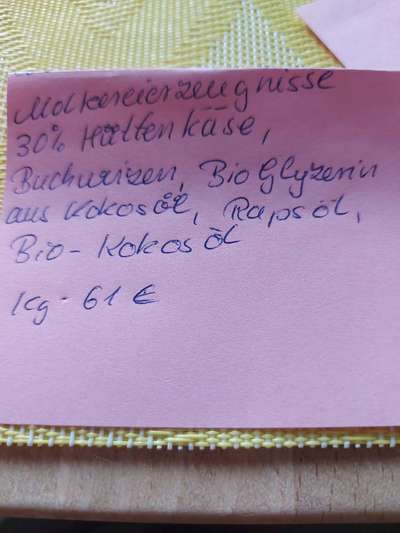 Molkereierzeugnisse
30% Hüttenkäse,
Buchweizen, Bio Glyzerin
aus Kokosöl, Rapsöl,
Bio-Kokosöl
Kg. 61 €